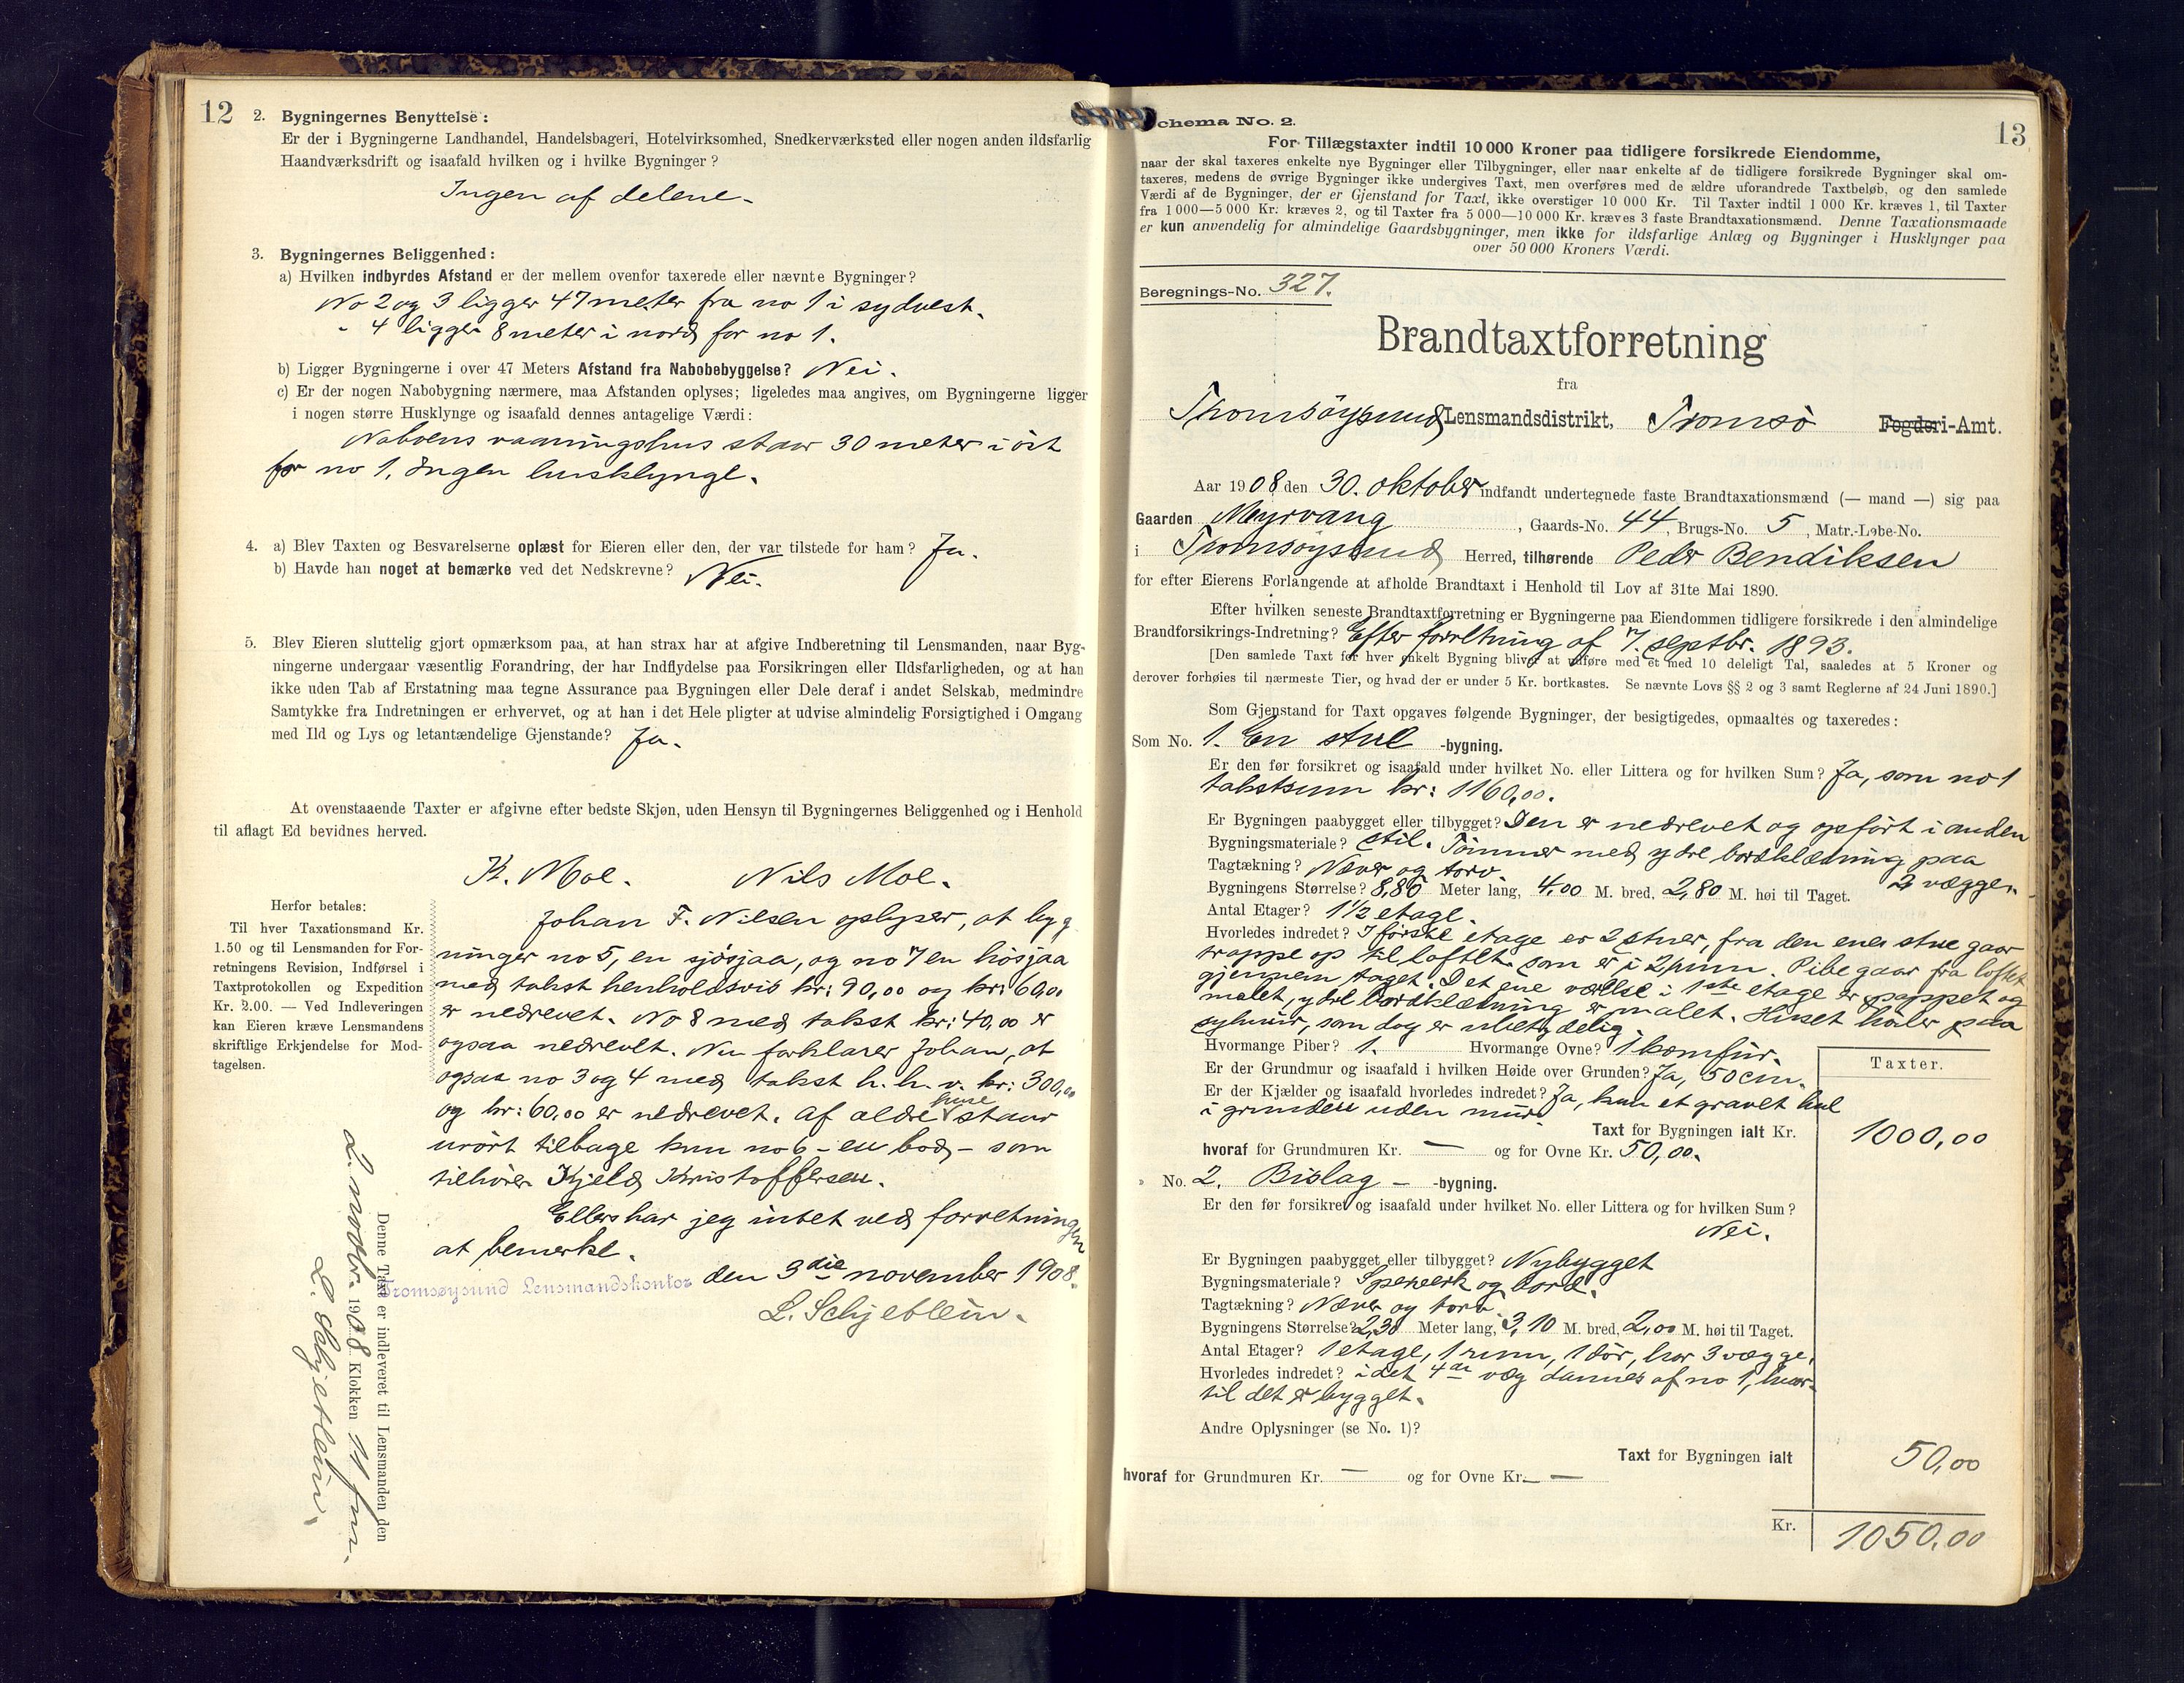 12
2. Bygningernes Benyttelse:
Er der i Bygningerne Landhandel, Handelsbageri, Hotelvirksomhed, Snedkerværksted eller nogen anden ildsfarlig
Haandværksdrift og isaafald hvilken og i hvilke Bygninger?
Ingen af delene.
3. Bygningernes Beliggenhed:
a) Hvilken indbyrdes Afstand er der mellem ovenfor taxerede eller nævnte Bygninger?
No 2 og 3 ligger 47 meter fra no 1 i sydvest.
" 4 ligger 8 meter i nord for no 1.
b) Ligger Bygningerne i over 47 Meters Afstand fra Nabobebyggelse? Nei.
c) Er der nogen Nabobygning nærmere, maa Afstanden oplyses; ligeledes maa angives, om Bygningerne ligger
i nogen større Husklynge og isaafald dennes antagelige Værdi:
Naboens vaaningshus staar 30 meter i öst
for no 1. Ingen husklynge.
4. a) Blev Taxten og Besvarelserne oplæst for Eieren eller den, der var tilstede for ham? Ja.
b) Havde han noget at bemærke ved det Nedskrevne? Nei.
5. Blev Eieren sluttelig gjort opmærksom paa, at han strax har at afgive Indberetning til Lensmanden, naar Byg-
ningerne undergaar væsentlig Forandring, der har Indflydelse paa Forsikringen eller Ildsfarligheden, og at han
ikke uden Tab af Erstatning maa tegne Assurance paa Bygningen eller Dele deraf i andet Selskab, medmindre
Samtykke fra Indretningen er erhvervet, og at han i det Hele pligter at udvise almindelig Forsigtighed i Omgang
med Ild og Lys og letantændelige Gjenstande? Ja.
At ovenstaaende Taxter er afgivne efter bedste Skjøn, uden Hensyn til Bygningernes Beliggenhed og i Henhold
til aflagt Ed bevidnes herved.
K. Moe. Nils Moe.
Herfor betales:
Til hver Taxationsmand Kr.
1.50 og til Lensmanden for For-
retningens Revision, Indførsel i
Taxtprotokollen og Expedition
Kr. 2.00. — Ved Indleveringen
kan Eieren kræve Lensmandens
skriftlige Erkjendelse for Mod-
tagelsen.
Johan F. Nilsen oplyser, at byg
ninger no 5, en sjösjaa, og no 7 en hösjaa
med takst henholdsvis kr: 90,00 og kr: 60,00
er nedrevet. No 8 med takst kr: 40,00 er
ogsaa nedrevet. Nu forklarer Johan, at
ogsaa no 3 og 4 med takst h.h.v. kr: 300,00
og kr: 60,00 er nedrevet. Af ældre huse staar
urört tilbage kun no 6 - en bod, - som
tilhörer Kjeld Kristoffersen.
Ellers har jeg intet ved forretningen
at bemerke.
Tromsøysund Lensmandskontor den 3die november 1908.
L. Schjetlein.
Denne Taxt er indleveret til Lensmanden den
2. novbr. 1908 Klokken 11 fm.
L. Schjetlein.
13
Schema No. 2.
For Tillægstaxter indtil 10 000 Kroner paa tidligere forsikrede Eiendomme,
naar der skal taxeres enkelte nye Bygninger eller Tilbygninger, eller naar enkelte af de tidligere forsikrede Bygninger skal om-
taxeres, medens de øvrige Bygninger ikke undergives Taxt, men overføres med de ældre uforandrede Taxtbeløb, og den samlede
Værdi af de Bygninger, der er Gjenstand for Taxt, ikke overstiger 10 000 Kr. Til Taxter indtil 1 000 Kr. kræves 1, til Taxter
fra 1 000—5 000 Kr. kræves 2, og til Taxter fra 5 000—10 000 Kr. kræves 3 faste Brandtaxationsmænd. Denne Taxationsmaade
er kun anvendelig for almindelige Gaardsbygninger, men ikke for ildsfarlige Anlæg og Bygninger i Husklynger paa
over 50 000 Kroners Værdi.
Beregnings-No. 327.
Brandtaxtforretning
fra
Tromsöysund Lensmandsdistrikt, Tromsö Fogderi-Amt.
Aar 1908 den 30. oktober indfandt undertegnede faste Brandtaxationsmænd (— mand —) sig paa
Gaarden Myrvang, Gaards-No. 44, Brugs-No. 5, Matr.-Løbe-No.
i Tromsøysund Herred, tilhørende Peder Bendiksen
for efter Eierens Forlangende at afholde Brandtaxt i Henhold til Lov af 31te Mai 1890.
Efter hvilken seneste Brandtaxtforretning er Bygningerne paa Eiendommen tidligere forsikrede i den almindelige
Brandforsikrings-Indretning? Efter forretning af 7. septbr. 1893.
[Den samlede Taxt for hver enkelt Bygning bliver at udføre med et med 10 deleligt Tal, saaledes at 5 Kroner og
derover forhøies til nærmeste Tier, og hvad der er under 5 Kr. bortkastes. Se nævnte Lovs §§ 2 og 3 samt Reglerne af 24 Juni 1890.]
Som Gjenstand for Taxt opgaves følgende Bygninger, der besigtigedes, opmaaltes og taxeredes:
Som No. 1. En stue -bygning.
Er den før forsikret og isaafald under hvilket No. eller Littera og for hvilken Sum? Ja, som no 1
takstsum kr: 1160,00.
Er Bygningen paabygget eller tilbygget? Den er nedrevet og opfört i anden
Bygningsmateriale? stil. Tömmer med ydre bordklædning paa
Tagtækning? Næver og torv. 2 vægger.
Bygningens Størrelse? 8,80 Meter lang, 4,00 M. bred, 2,80 M. høi til Taget.
Antal Etager? 1 1/2 etage.
Hvorledes indredet? I förste etage er 2 stuer, fra den ene stue gaar
trappe op til loftet som er i 2 rum. Pibe gaar fra loftet
gjennem taget. Det ene værelse i 1ste etage er pappet og
malet, ydre bordklædning er malet. Huset hviler paa
sylmur, som dog er ubetydelig.
Hvormange Piber? 1. Hvormange Ovne? 1 komfur.
Er der Grundmur og isaafald i hvilken Høide over Grunden? Ja, 50 cm.
Er der Kjælder og isaafald hvorledes indredet? Ja, kun et gravet hul
i grunden uden mur.
Taxter.
Taxt for Bygningen ialt Kr. 1000,00
hvoraf for Grundmuren Kr. — og for Ovne Kr. 50,00.
» No. 2. Bislag — -bygning.
Er den før forsikret og isaafald under hvilket No. eller Littera og for hvilken Sum?
Nei.
Er Bygningen paabygget eller tilbygget? Nybygget
Bygningsmateriale? Sperverk og bord.
Tagtækning? Næver og torv.
Bygningens Størrelse? 2,30 Meter lang, 3,10 M. bred, 2,00 M. høi til Taget.
Antal Etager? 1 etage, 1 rum, 1 dör, har 3 vægge,
Hvorledes indredet? idet 4de væg dannes af no 1, hvor-
til det er bygget.
Andre Oplysninger (se No. 1)?
Taxt for Bygningen ialt 50,00
hvoraf for Grundmuren Kr. — og for Ovne Kr. —
Kr. 1050,00